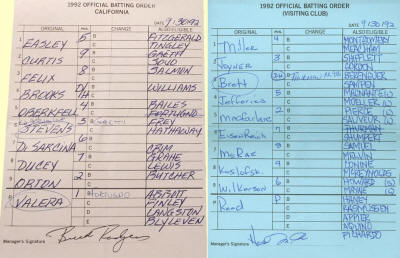 1992 OFFICIAL BATTING ORDER
CALIFORNIA
9/30/92
ORIGINAL POS. CHANGE ALSO ELIGIBLE
1 EASLEY 5 B FITZGERALD
C TINGLEY
2 CURTIS 9 B GAETTI
C SOJO
3 FELIX 8 B SALMON
C
4 BROOKS B WILLIAMS
C
5 OBERKFELL 4 B BAILES
C FORTUGNO
STEVENS 3 FREY
C HATHAWAY
DISARCINA 6 B
C CRIM
DUCEY 7 B GRAHE
C LEWIS
ORTON 2 B BUTCHER
C
VALERA 1 B FORTUGNO ABBOTT
C FINLEY
D LANGSTON
E BLYLEVEN
Manager's Signature Buck Rodgers
1992 OFFICIAL BATTING ORDER
(VISITING CLUB)
9/30/92
ORIGINAL POS. CHANGE ALSO ELIGIBLE
1 Miller 4 B MONTGOMERY
C MEACHAM
2 Joyner 3 B SHIFFLETT
C GORDON
3 Brett DH B BERENGUER
C SAMPEN
4 Jefferies 5 B
C MOELLER (L)
5 Macfarlane 2 B PIERCE
C SAUVEUR (L)
6 Eisenreich 9 B THURMAN
C SHUMPERT
7 McRae 8 B SAMUEL
C MELVIN
8 Koslofski B
C McREYNOLDS
9 Wilkerson 6 B HOWARD (S)
C MAYNE (L)
Reed P B HANEY
C RASMUSSEN
D APPIER
E AQUINO
PICHARDO
Manager's Signature